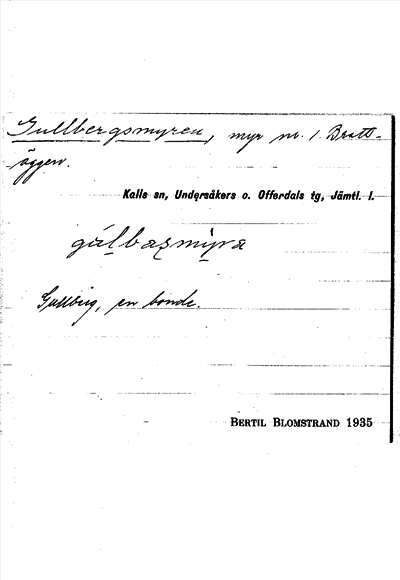 Gullbergsmyren, myr nv. l. Bratt-
äggen.
Kalls sn, Undersåkers o. Offerdals tg, Jämtl. l.
Gullberg, en bonde.
BERTIL BLOMSTRAND 1935